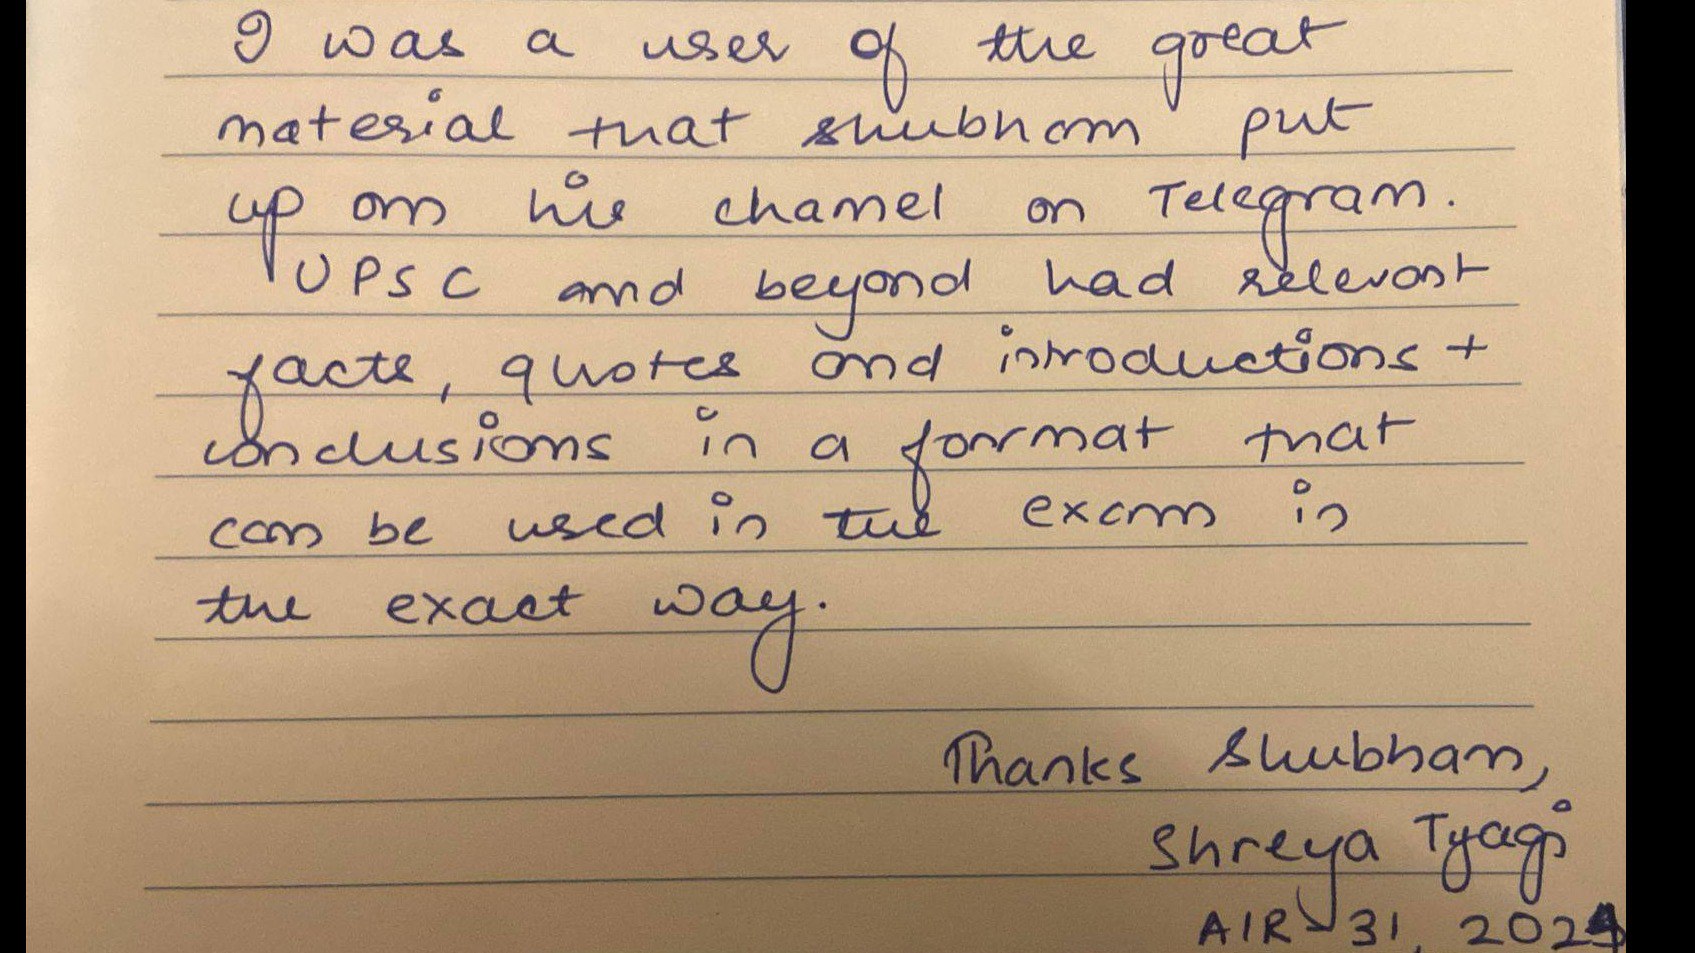 I was a user of the great
material that shubham put
up on his channel on Telegram.
UPSC and beyond had relevant
facts, quotes and introductions +
conclusions in a format that
can be used in the exam in
the exact way.
Thanks Shubham,
Shreya Tyagi
AIR 31, 2024